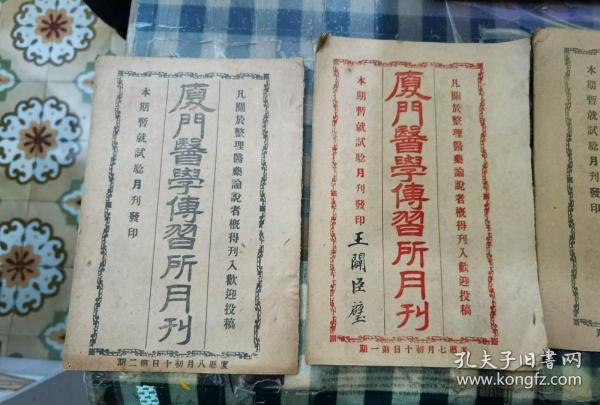 凡關於整理醫藥論說者概得刊入歡迎投稿
廈門醫學傳習所月刊
本期暫就試驗月刊發印
廈歷八月初十日第二期
凡關於整理醫藥論說者概得刊入歡迎投稿
廈門醫學傳習所月刊
本期暫就試驗月刊發印
王闢臣
歷七月初十日第一期
孔夫子旧书网
www.kongfz.com